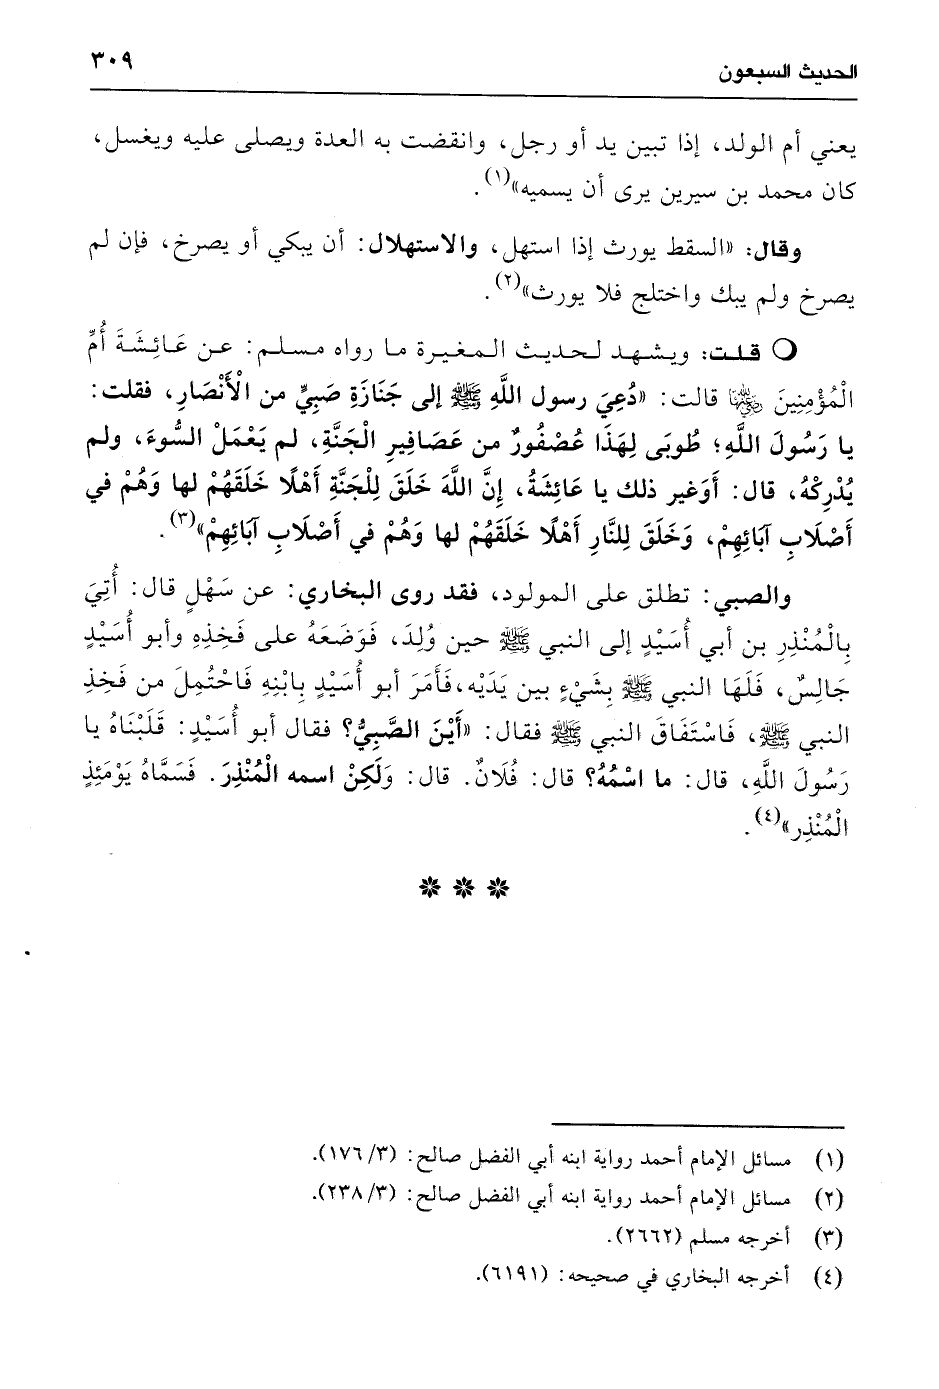 الحديث السبعون ٣٠٩
يعني أم الولد، إذا تبين يد أو رجل، وانقضت به العدة ويصلى عليه ويغسل،
كان محمد بن سيرين يرى أن يسميه»(١).
وقال: «السقط يورث إذا استهل، والاستهلال: أن يبكي أو يصرخ، فإن لم
يصرخ ولم يبك واختلج فلا يورث»(٢).
❍ قلت: ويشهد لحديث المغيرة ما رواه مسلم: عن عَائِشَةَ أُمِّ
الْمُؤْمِنِينَ رضي الله عنها قالت: «دُعِيَ رسول اللَّهِ ﷺ إلى جَنَازَةِ صَبِيٍّ من الْأَنْصَارِ، فقلت:
يا رَسُولَ اللَّهِ؛ طُوبَى لِهَذَا عُصْفُورٌ من عَصَافِيرِ الْجَنَّةِ، لم يَعْمَلْ السُّوءَ، ولم
يُدْرِكْهُ، قال: أَوَغير ذلك يا عَائِشَةُ، إِنَّ اللَّهَ خَلَقَ لِلْجَنَّةِ أَهْلًا خَلَقَهُمْ لها وَهُمْ في
أَصْلَابِ آبَائِهِمْ، وَخَلَقَ لِلنَّارِ أَهْلًا خَلَقَهُمْ لها وَهُمْ في أَصْلَابِ آبَائِهِمْ»(٣).
والصبي: تطلق على المولود، فقد روى البخاري: عن سَهْلٍ قال: أُتِيَ
بِالْمُنْذِرِ بن أبي أُسَيْدٍ إلى النبي ﷺ حين وُلِدَ، فَوَضَعَهُ على فَخِذِهِ وأبو أُسَيْدٍ
جَالِسٌ، فَلَهَا النبي ﷺ بِشَيْءٍ بين يَدَيْه، فَأَمَرَ أبو أُسَيْدٍ بِابْنِهِ فَاحْتُمِلَ من فَخِذِ
النبي ﷺ، فَاسْتَفَاقَ النبي ﷺ فقال: «أَيْنَ الصَّبِيُّ؟ فقال أبو أُسَيْدٍ: قَلَبْنَاهُ يا
رَسُولَ اللَّهِ، قال: ما اسْمُهُ؟ قال: فُلَانٌ. قال: وَلَكِنْ اسمه الْمُنْذِرَ. فَسَمَّاهُ يَوْمَئِذٍ
الْمُنْذِر»(٤).
❋ ❋ ❋
(١) مسائل الإمام أحمد رواية ابنه أبي الفضل صالح: (٣/ ١٧٦).
(٢) مسائل الإمام أحمد رواية ابنه أبي الفضل صالح: (٣/ ٢٣٨).
(٣) أخرجه مسلم (٢٦٦٢).
(٤) أخرجه البخاري في صحيحه: (٦١٩١).